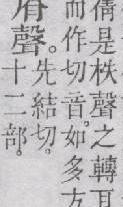 倩是柣聲之轉耳
而作切音。如多方
屑聲。先結切。
十二部。